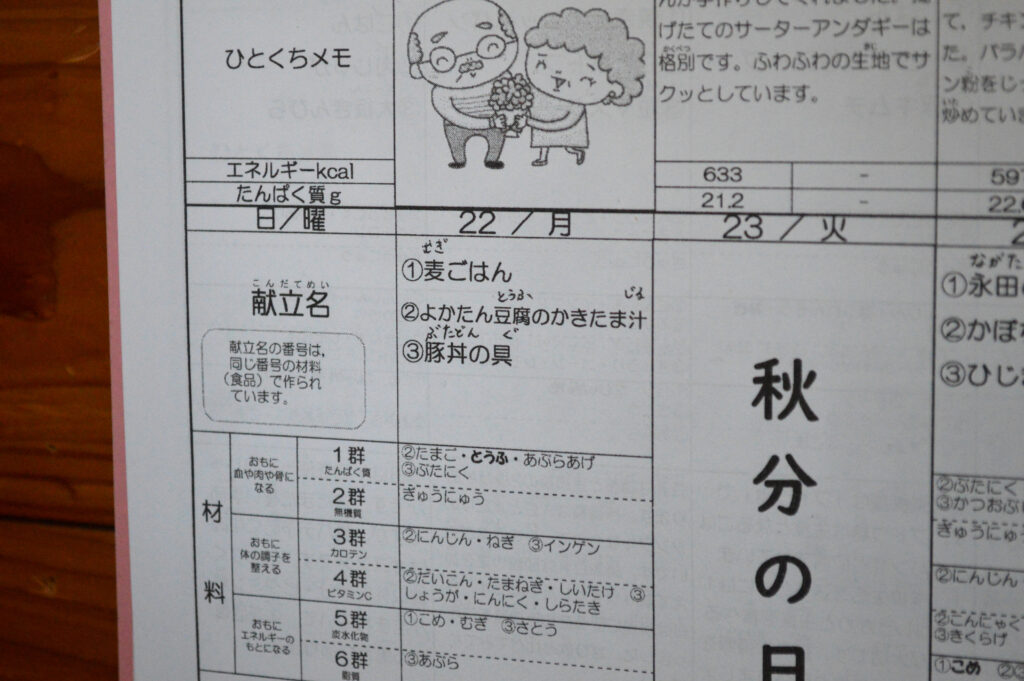 ひとくちメモ
げたてのサーターアンダギーは
かくべつ
格別です。ふわふわの生地でサ
クッとしています。
て、チキ
た。パラパ
ン粉をじっ
炒めていき
エネルギーkcal
633
-
597
たんぱく質g
21.2
-
22.
日/曜
22/月
23/火
こんだてめい
献立名
献立名の番号は、
同じ番号の材料
(食品)で作られ
ています。
むぎ
①麦ごはん
とうふ じる
②よかたん豆腐のかきたま汁
ぶたどん ぐ
③豚丼の具
秋分の日
ながた
①永田
②かぼ
③ひじ
材料
おもに
血や肉や骨に
なる
1群
たんぱく質
②たまご・とうふ・あぶらあげ
③ぶたにく
②ぶたにく
③かつおぶ
2群
無機質
ぎゅうにゅう
ぎゅうにゅ
おもに
体の調子を
整える
3群
カロテン
②にんじん・ねぎ ③インゲン
②にんじん
4群
ビタミンC
②だいこん・たまねぎ・しいたけ ③
しょうが・にんにく・しらたき
②こんにゃく
③きくらげ
おもに
エネルギーの
もとになる
5群
炭水化物
①こめ・むぎ ③さとう
①こめ
6群
脂質
③あぶら